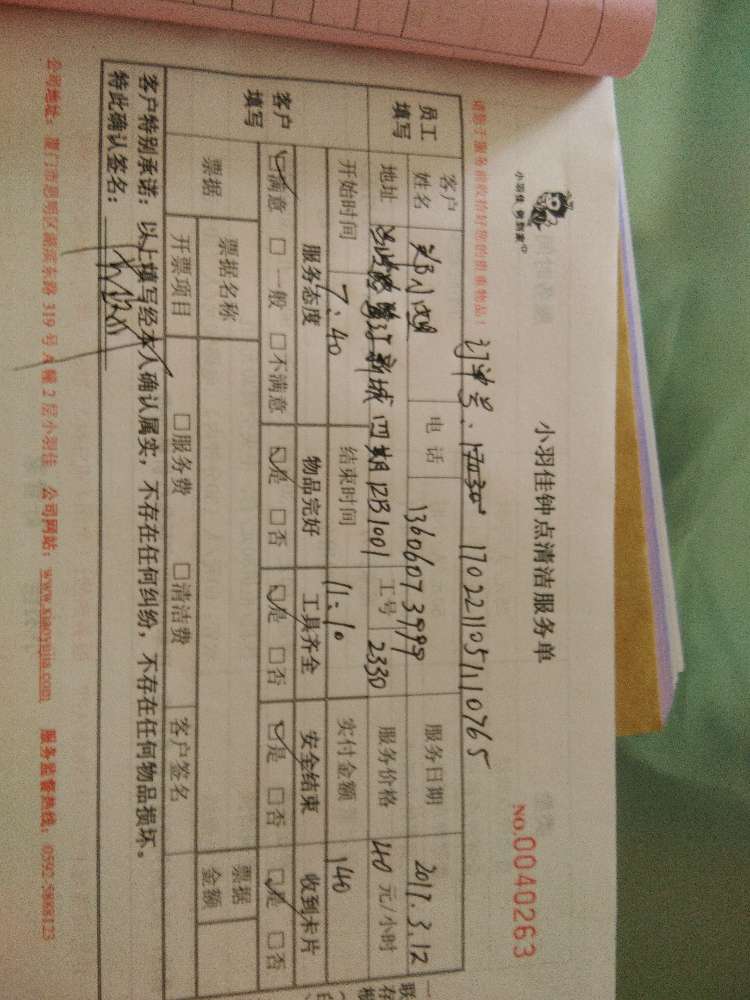 小羽佳钟点清洁服务单
小羽佳 你的家
NO.0040263
订单号:
170221105110765
请您于服务前收拾好您的贵重物品!
员工填写
客户姓名
电话
13606073999
服务日期
2017.3.12
地址
新城四期12B1001
工号
2330
服务价格
40 元/小时
开始时间
7:40
结束时间
11:10
实付金额
140
客户填写
服务态度
物品完好
工具齐全
安全结束
收到卡片
☑满意 □一般 □不满意
☑是 □否
☑是 □否
☑是 □否
☑是 □否
票据
票据名称
票据金额
开票项目
□服务费 □清洁费
客户签名
客户特别承诺:以上填写经本人确认属实,不存在任何纠纷,不存在任何物品损坏。
特此确认签名:
公司地址:厦门市思明区湖滨东路319号A幢2层小羽佳 公司网站:www.xiaoyujia.com 服务监督热线:0592-5868123